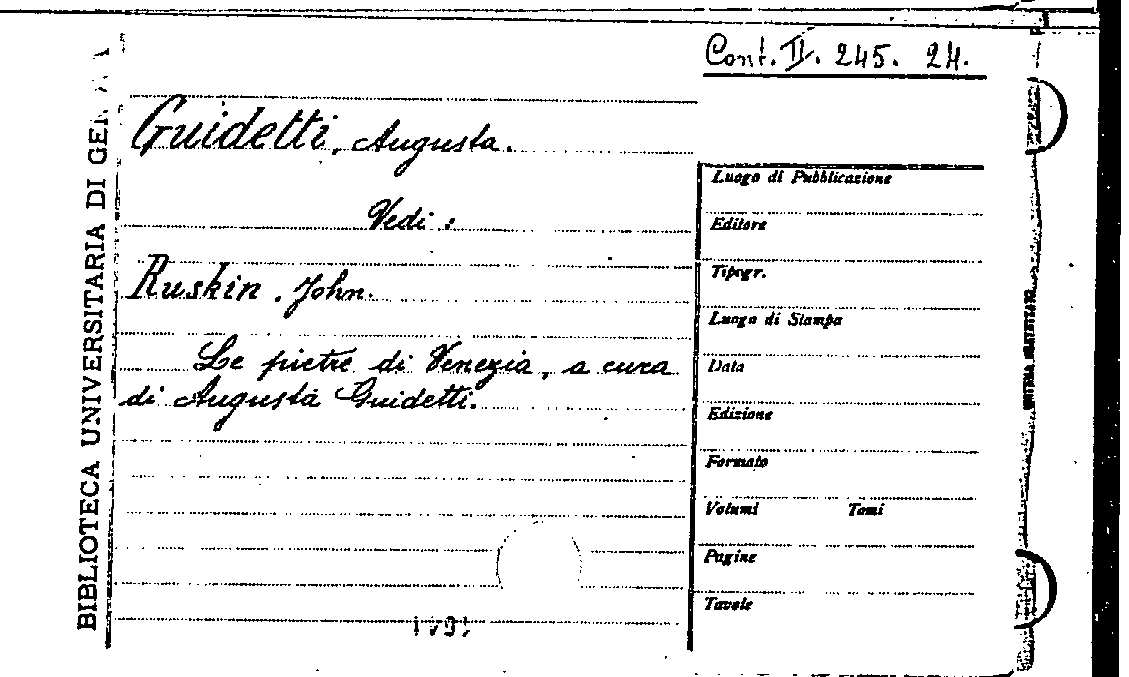 Cont. II. 245. 24.
Guidetti, Augusta.
Vedi:
Ruskin, John.
Le pietre di Venezia, a cura
di Augusta Guidetti.
Luogo di Pubblicazione
Editore
Tipogr.
Luogo di Stampa
Data
Edizione
Formato
Volumi Tomi
Pagine
Tavole
BIBLIOTECA UNIVERSITARIA DI